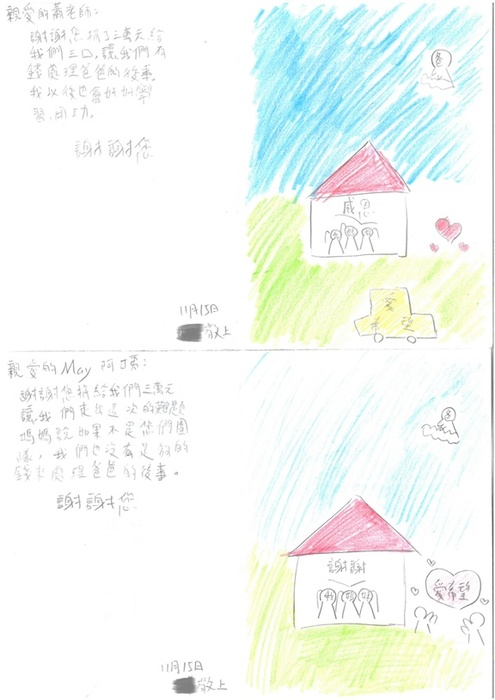 親愛的蕭老師:
謝謝您捐了三萬元給
我們三口,讓我們有
錢處理爸爸的後事。
我以後也會好好學
習、用功。
謝謝您
11月15日
敬上
爸
感恩
愛
希望
親愛的May阿姨:
謝謝您捐給我們三萬元
讓我們度過這次的難題
媽媽說如果不是你們團
隊,我們也沒有足夠的
錢來處理爸爸的後事。
謝謝您
11月15日
敬上
爸
謝謝
愛希望